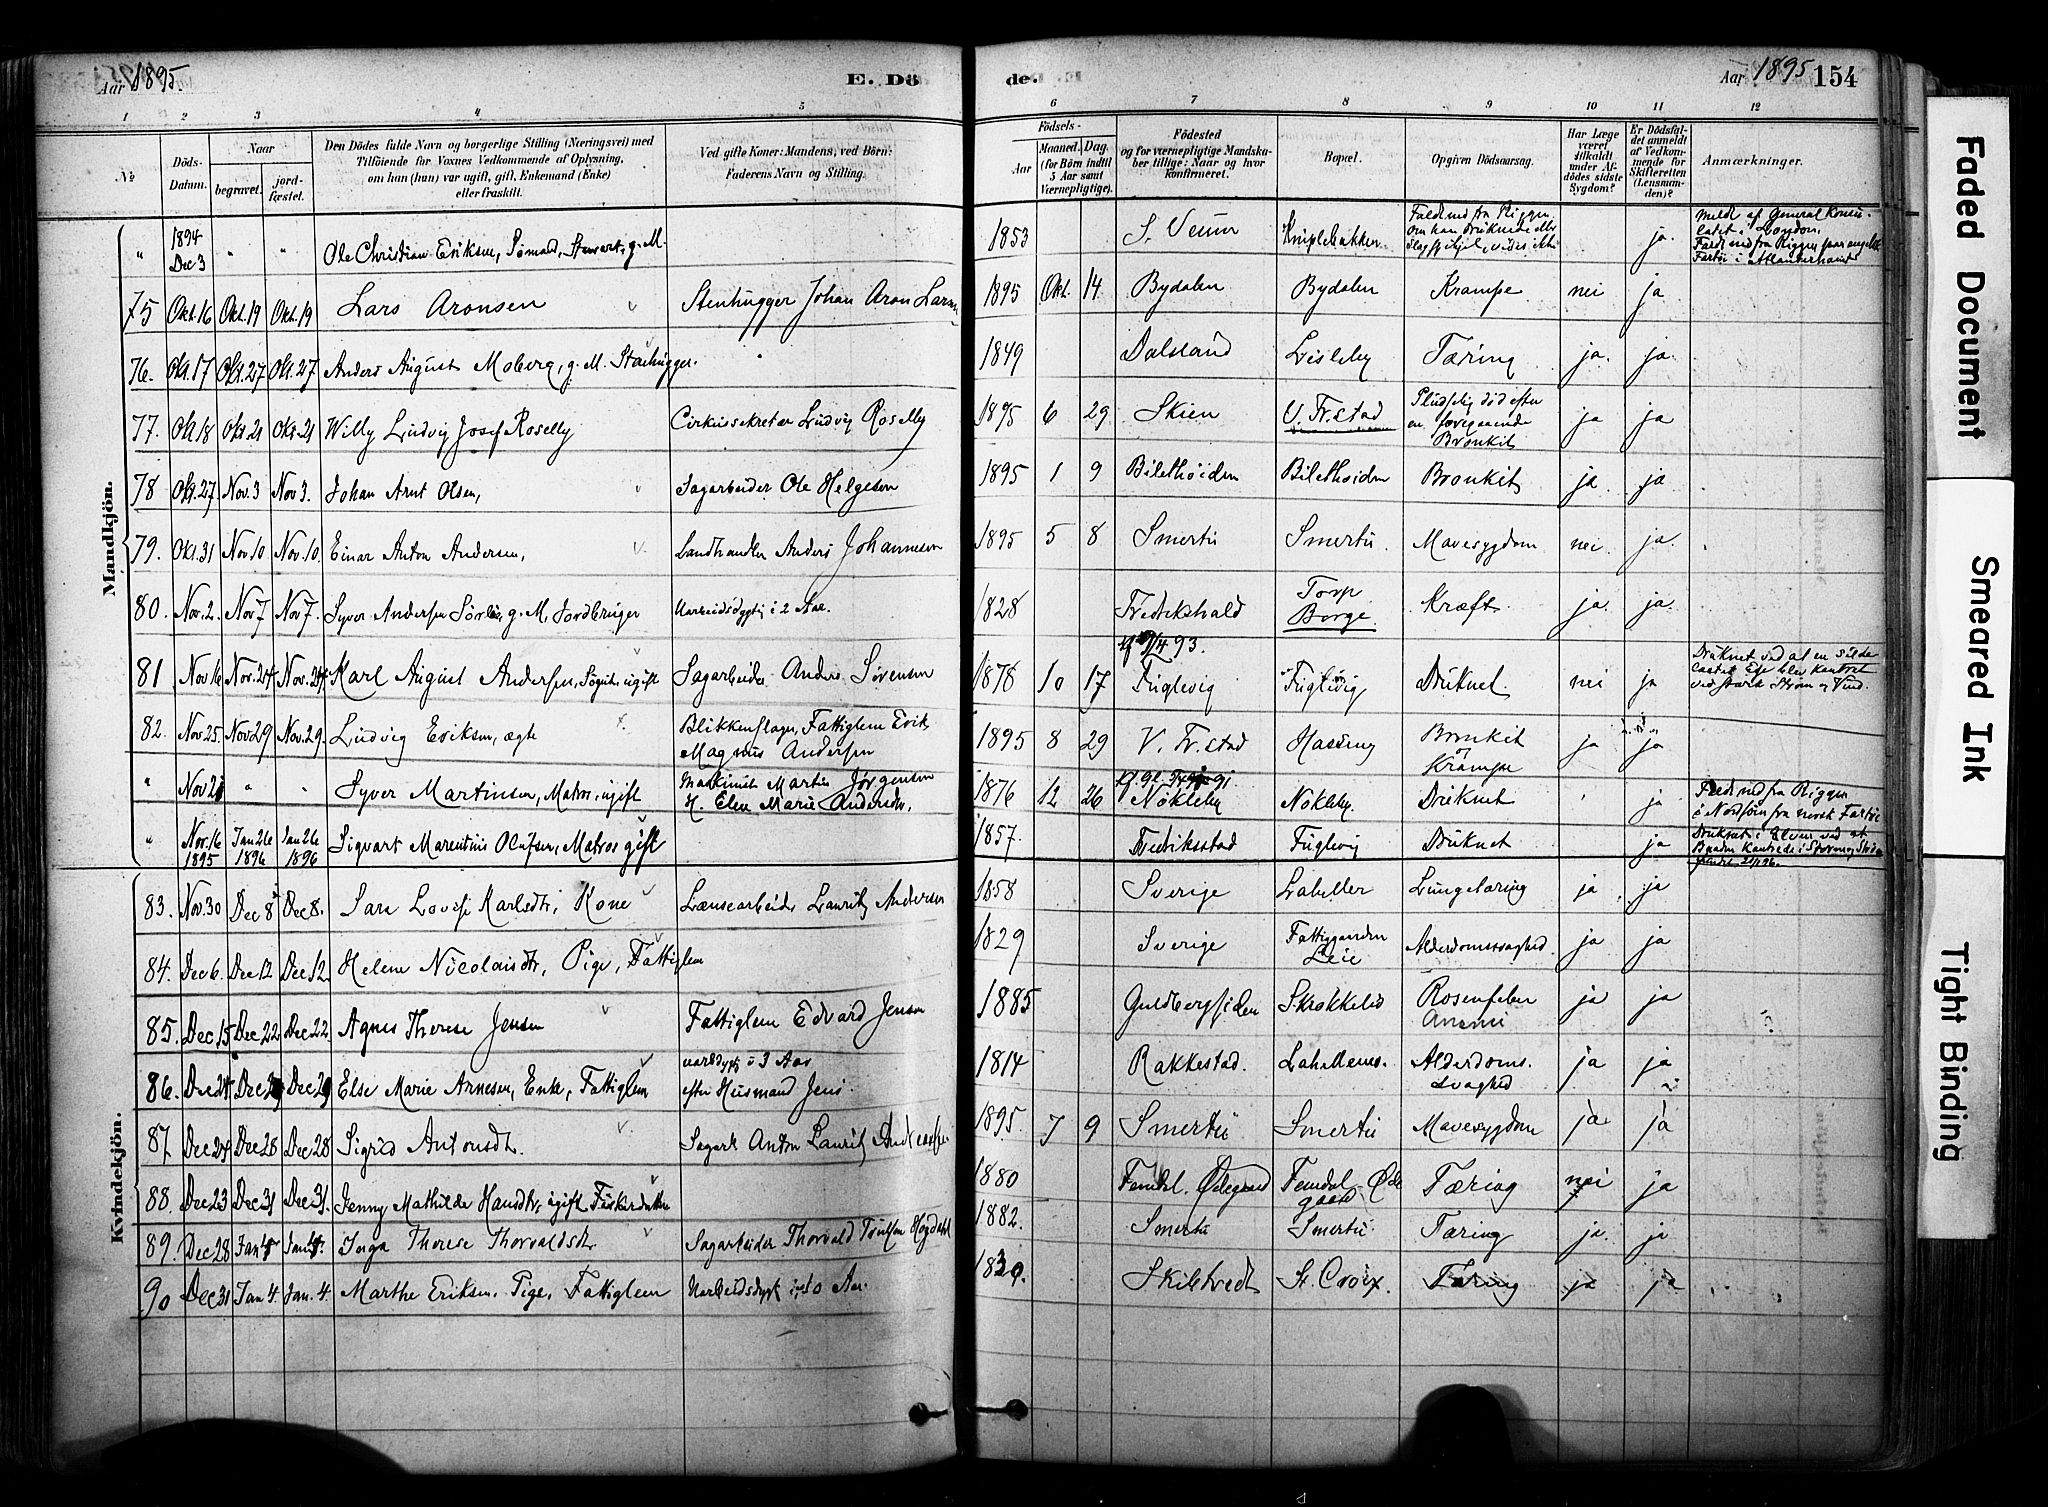 Aar 1895. E. Dö
de. Aar 1895 154
1 2 3 4 5 6 7 8 9 10 11 12
No
Döds-Datum.
Naar
begravet.
jord-fæstet.
Den Dödes fulde Navn og borgerlige Stilling (Næringsvei) med
Tilföiende for Voxnes Vedkommende af Oplysning,
om han (hun) var ugift, gift, Enkemand (Enke)
eller fraskilt.
Ved gifte Koner: Mandens, ved Börn:
Faderens Navn og Stilling.
Födsels-
Aar
Maaned. Dag.
(for Börn indtil
5 Aar samt
Værnepligtige).
Födested
og for værnepligtige Mandska-
ber tillige: Naar og hvor
konfirmeret.
Bopæl.
Opgiven Dödsaarsag.
Har Læge
været
tilkaldt
under Af-
dödes sidste
Sygdom?
Er Dödsfal-
det anmeldt
af Vedkom-
mende for
Skifteretten
(Lensman-
den)?
Anmærkninger.
Mandkjön.
" 1894 Dec 3 " " Ole Christian Eriksen, Sömand, Stewart, g. M. 1853 S. Veum Kniplebakken Faldt ned fra Riggen. Om han druknede eller slog sig ihjel, vides ikke ja. Meldt af General Konsulatet i London. Faldt ned fra Riggen paa engelsk Fartöi i Atlanterhavet
75 Okt. 16 Okt. 19 Okt. 19 Lars Aronsen Stenhugger Johan Aron Larsen 1895 Okt. 14 Bydalen Bydalen Krampe nei ja
76. Okt. 17 Okt. 27 Okt. 27 Anders August Moberg, g. M. Stenhugger. 1849 Dalsland Lisleby Tæring ja. ja.
77. Okt 18 Okt. 21 Okt. 21 Willy Ludvig Josef Roselly Cirkussekretær Ludvig Roselly 1895 6 29 Skien V. Fr.stad Pludselig död efter en foregaaende Bronkit ja ja
78 Okt. 27 Nov. 3 Nov 3. Johan Arnt Olsen, Sagarbeider Ole Helgesen 1895 1 9 Bilethöiden Bilethöiden Bronkit ja ja
79. Okt. 31 Nov. 10 Nov. 10. Einar Anton Andersen, Landhandler Anders Johannesen 1895 5 8 Smertu Smertu. Mavesygdom nei. ja.
80. Nov. 2 Nov 7 Nov 7. Syver Andersen Sörlie, g. M. Jordbruger Uarbeidsdygtig i 2 Aar. 1828 Fredrikshald Torp Borge. Kræft. ja. ja.
81 Nov 16 Nov. 24 Nov. 24 Karl August Andersen, ugift Sagarbeider Anders Sörensen 1878 10 17 93. Fuglevig Fuglevig Druknet. nei ja Druknet ved at en silde lastet blev kantret ved stærk Ström og Vind.
82. Nov. 25. Nov 29 Nov. 29. Ludvig Eriksen, ægte Blikkenslager, Fattiglem Erik Magnus Andersen 1895 8 29 V. Fr.stad Hassing Bronkit og Krampe ja ja
" Nov 21 " " Syver Martinsen, Matros, ugift Maskinist Martin Jörgensen H. Elen Marie Andersdr. 1876 12 26 Nökleby Nökleby. Druknet ja Faldt ned fra Riggen i Nordsöen fra norsk Fartöi
" Nov. 16 1895 Jan 26 1896 Jan 26 1896 Sigvart Marentius Olufsen, Matros gift 1857. Fredriksstad Fuglevig Druknet ja Druknet i Elven ved at Baaden kantrede i Storm
Kvindekjön.
83. Nov. 30 Dec 8 Dec 8. Sara Lovise Karlsdtr, Kone Lænsearbeider Laurits Andersen 1858 Sverige Lahellen Lungetæring ja. ja
84. Dec 6. Dec 12 Dec 12. Helene Nicolaisdtr, Pige, Fattiglem 1829 Sverige Fattiggaarden Leie Alderdomssvaghed ja ja
85. Dec 15 Dec 22 Dec 22. Agnes Therese Jensen Fattiglem Edvard Jensen 1885 Guldbergsiden Skrökkelid Rosenfeber Anæmi ja ja
86. Dec 24 Dec 29 Dec 29 Else Marie Arnesen, Enke, Fattiglem uarbdygt i 3 Aar efter Husmand Jens. 1814 Rakkestad. Lahellens. Alderdoms-svaghed ja ja
87 Dec 24 Dec 28 Dec 28 Sigrid Antonsdtr. Sagarb Anton Laurits Andersen 1895. 7 9 Smertu Smertu Mavesygdom ja ja
88. Dec 23 Dec 31 Dec 31. Jenny Mathilde Hansdtr, ugift Fiskerdatter 1880 Femdal. Ödegaard Femdal Ödegaard Tæring nei ja
89. Dec 28 Jan 4 Jan 4. Inga Therese Thorvaldsdtr. Sagarbeider Thorvald 1882. Smertu Smertu Tæring ja. ja
90 Dec 31 Jan 4. Jan. 4 Marthe Eriksen. Pige, Fattiglem Uarbeidsdygt i 10 Aar. 1830. Skiltvedt St. Croix. Tæring ja ja
Faded Document
Smeared Ink
Tight Binding